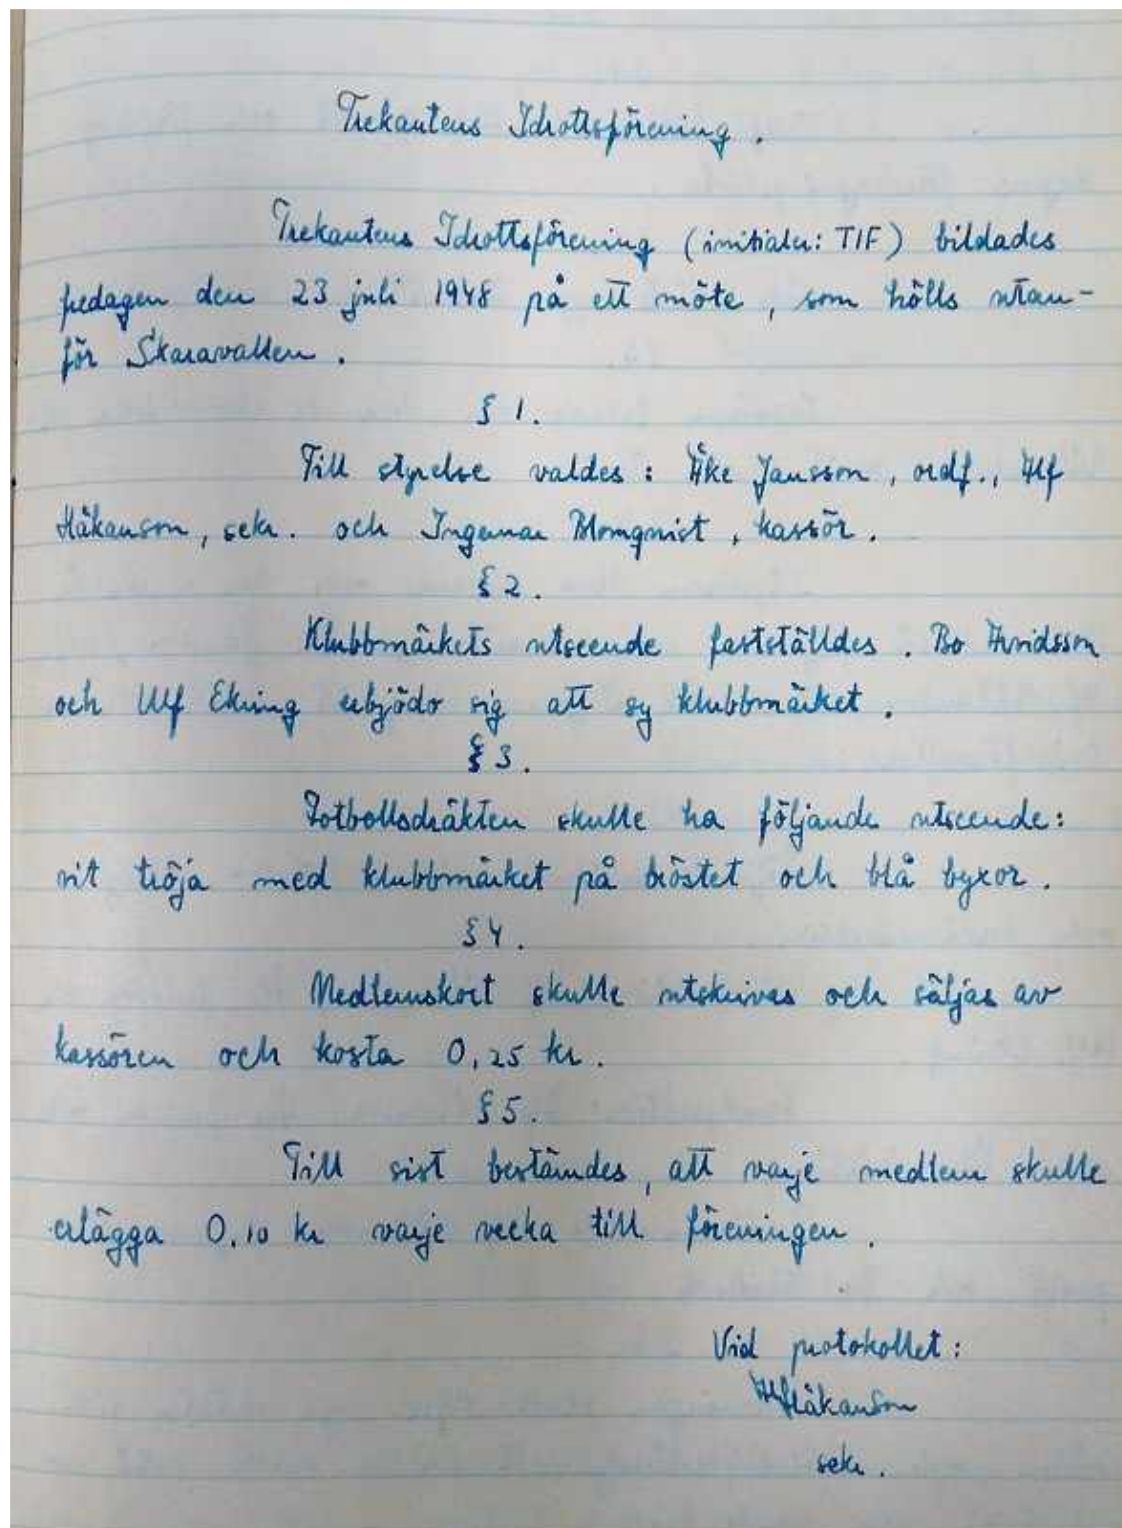 Trekantens Idrottsförening.
Trekantens Idrottsförening (initialer: TIF) bildades
fredagen den 23 juli 1948 på ett möte, som hölls utan-
för Skaravallen.
§ 1.
Till styrelse valdes: Åke Jansson, ordf., Alf
Håkanson, sekr. och Ingemar Blomqvist, kassör.
§ 2.
Klubbmärkets utseende fastställdes. Bo Arvidsson
och Ulf Ekring erbjödo sig att sy klubbmärket.
§ 3.
Fotbollsdräkten skulle ha följande utseende:
vit tröja med klubbmärket på bröstet och blå byxor.
§ 4.
Medlemskort skulle utskrivas och säljas av
kassören och kosta 0,25 kr.
§ 5.
Till sist bestämdes, att varje medlem skulle
erlägga 0,10 kr varje vecka till föreningen.
Vid protokollet:
Alf Håkanson
sekr.